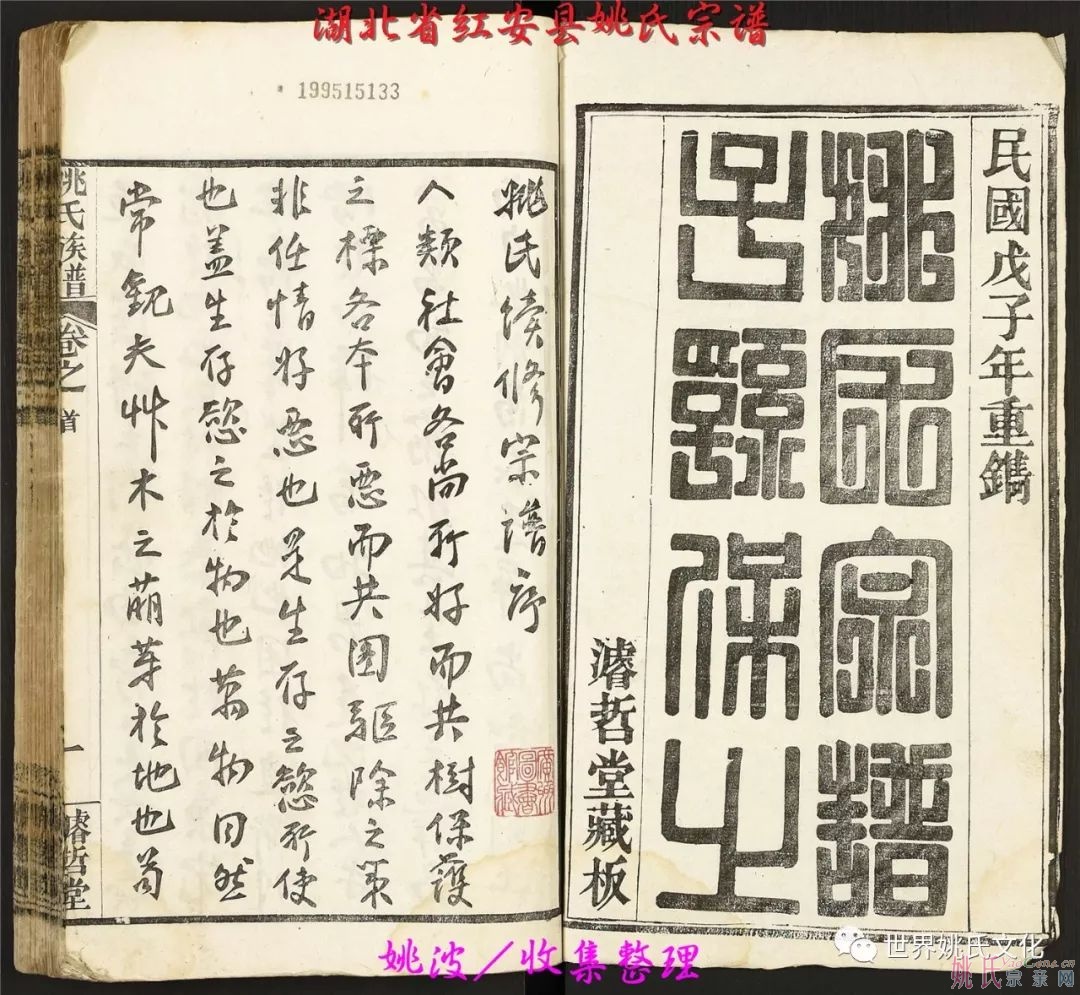 湖北省红安县姚氏宗谱
199515133
民國戊子年重鐫
姚氏宗譜
子孫保之
濬哲堂藏板
姚氏續修宗譜序
人類社會各尚所好而共樹保護
之標各本所惡而共圖驅除之策
非任情好惡也是生存之慾所使
也蓋生存慾之於物也萬物同然
常觀夫艸木之萌芽於地也苟
姚氏族譜
卷之
首
一
濬哲堂
姚波/收集整理
世界姚氏文化
姚氏宗亲网